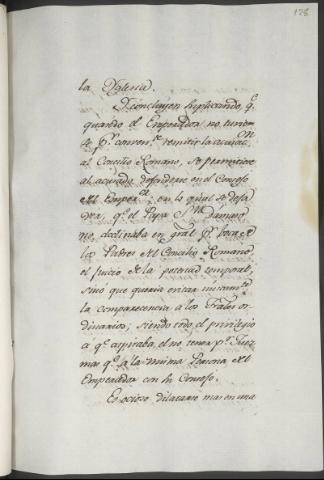 128
la Yglesia.
Y concluyen suplicando, q.e
quando el Emperador no tuviese
p.r conven.te remitir la acusac.on
al Concilio Romano, se permitiese
al acusado defenderse en el Consejo
del Emper.or en lo qual se dexa
ver, q.e el Papa S.n Damaso
no declinaba en gral p.r boca de
los Padres del Concilio Romano
el juicio de la potestad temporal,
sinó que queria evitar unicam.te
la comparecencia a los Trales or
dinarios, siendo todo el privilegio
a q.e aspiraba, el no tener p.r Juez
mas q.e a la misma Persona del
Emperador con su Consejo.
Es ocioso dilatarse mas en una